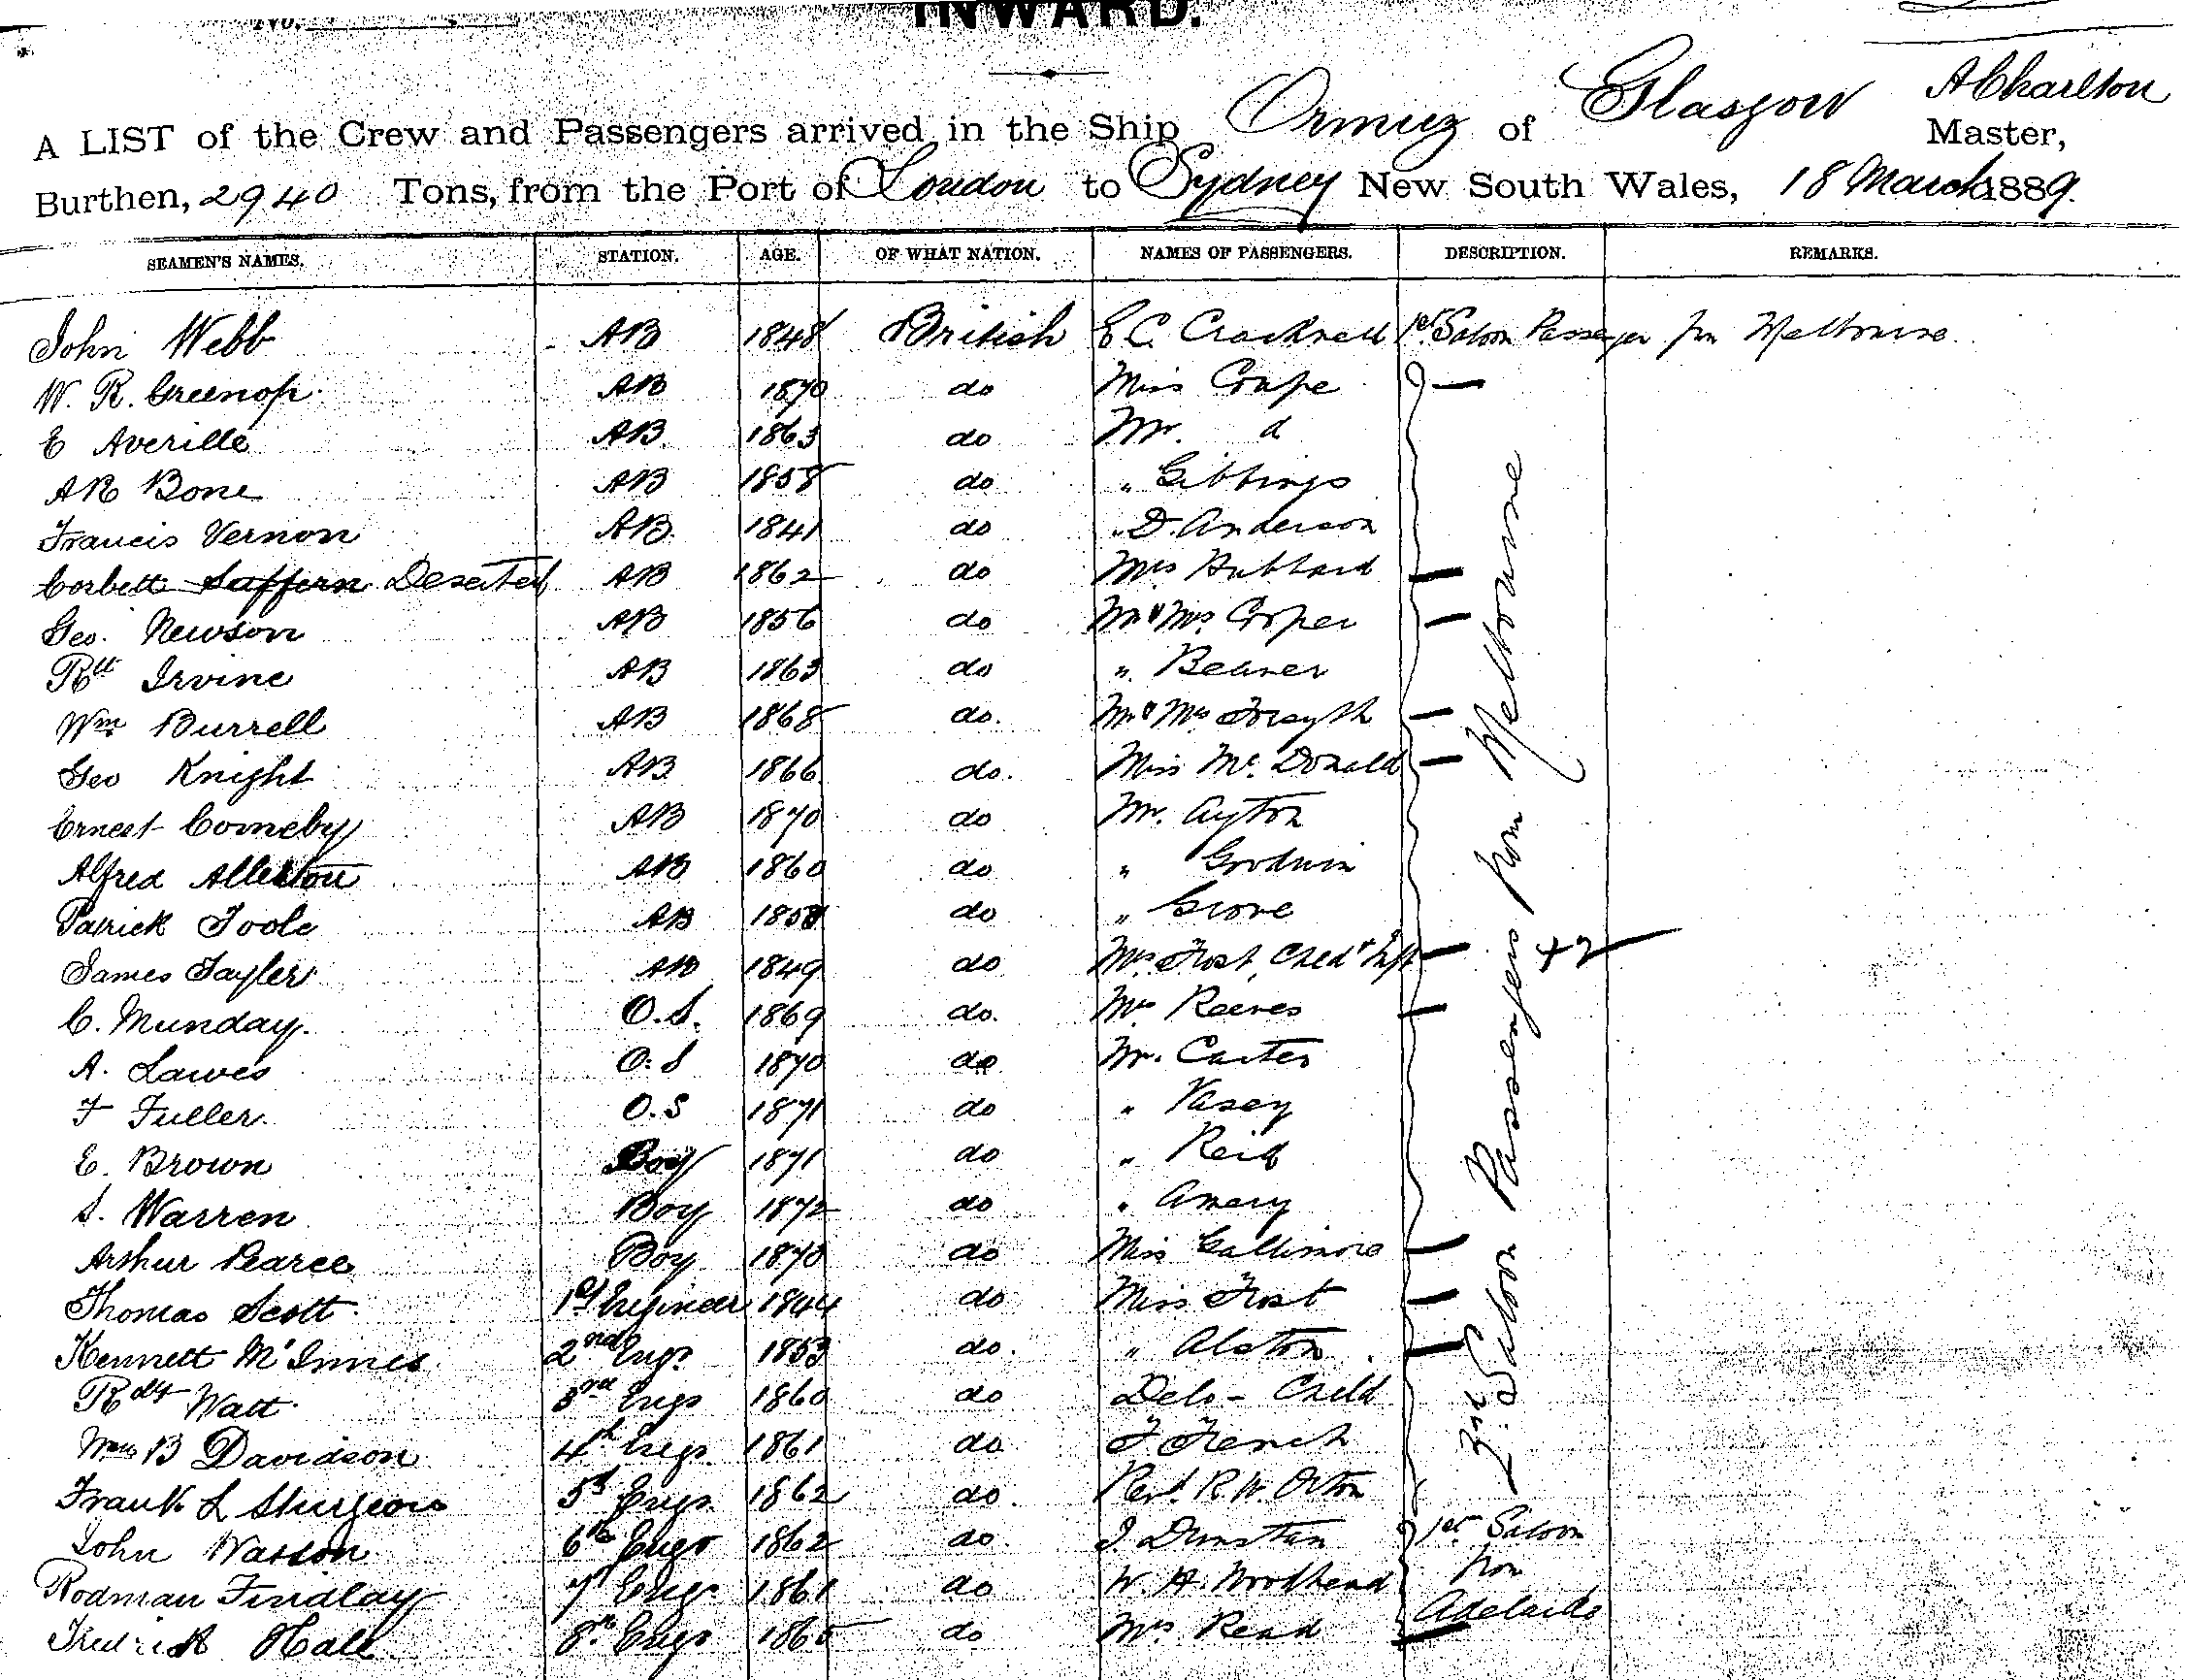 No.
INWARD.
A LIST of the Crew and Passengers arrived in the Ship Ormuz of Glasgow A Charlton Master,
Burthen, 2940 Tons, from the Port of London to Sydney New South Wales, 18 March 1889.
SEAMEN'S NAMES. STATION. AGE. OF WHAT NATION. NAMES OF PASSENGERS. DESCRIPTION. REMARKS.
John Webb AB 1848 British E C. Cracknell 1st Saloon Passenger from Melbourne.
W. R. Greenop AB 1870 do Miss Coupe
E Averille AB 1863 do Mr. d
AR Bone AB 1858 do " Gibbings
Francis Vernon AB 1841 do " D. Anderson
Corbett Saffern Deserted AB 1862 do Mrs Hubbard
Geo. Newson AB 1856 do Mr & Mrs. Cooper
Rtt Irvine AB 1863 do " Beaner
Wm Burrell AB 1868 do. Mr & Mrs Forsyth
Geo Knight AB 1866 do. Miss Mc. Donald
Ernest Comeby AB 1870 do Mr. Ayton
Alfred Allerton AB 1860 do " Goodwin
Patrick Toole AB 1858 do " Grove
James Tayler AB 1849 do Mrs. Frost, Child & Inft
C. Munday. O.S. 1869 do. Mrs Reeves
A. Lawes O.S 1870 do Mr. Carter
F Fuller. O.S 1871 do " Vasey
E. Brown Boy 1871 do " Reid
S. Warren Boy 1872 do " Amery
Arthur Pearce Boy 1870 do Miss Gallimore
Thomas Scott 1st Engineer 1844 do Miss Frost
Kennett McInnes 2nd Engr 1853 do. " Alston
Rdt Watt 3rd Engr 1860 do Delo - Child
Wm B Davidson 4th Engr. 1861 do F. French
Frank L Sturgeon 5th Engr. 1862 do. Revd. R. W. Orton
John Wasson 6th Engr 1862 do. J. Dunstan
Rodman Findlay 7th Engr. 1861 do W. H. Woodhead
Fredrick Hall 8th Engr 1865 do Mrs. Read
2nd. Saloon Passengers from Melbourne
42
1st. Saloon
from
Adelaide